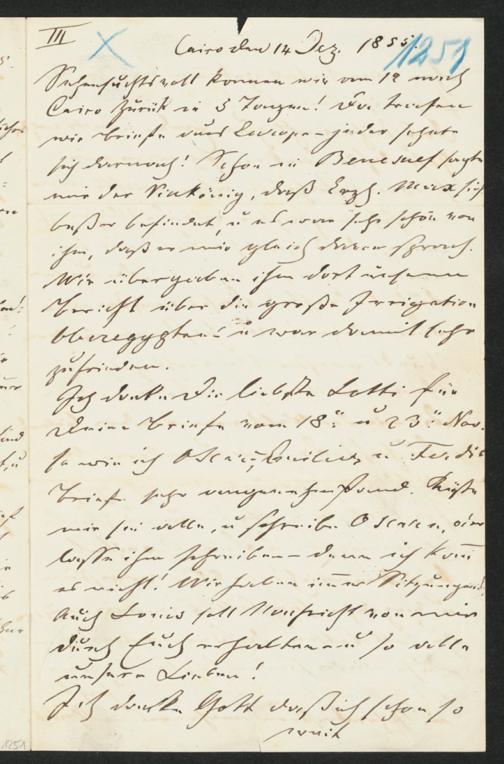 III
Cairo den 14 Dez. 1855.
1251
Sehnsuchtsvoll kommen wir am 12 nach
Cairo zurück in 5 Tagen! Da trafen
wir Briefe aus Europa – jeder sehnte
sich darnach! Schon in Benesuef sagte
mir der Vicekönig, daß Erzh. Max sich
beßer befindet, u es war sehr schön von
ihm, daß er mir gleich davon sprach.
Wir übergaben ihm dort unseren
Bericht über die große Irrigation
Oberegyptens u war damit sehr
zufrieden.
Ich danke Dir liebste Lotti für
Deine Briefe vom 18ten u 23ten Nov.
so wie ich Oscar, Emilie u Ferdis
Briefe sehr angenehm fand. Küße
mir sie alle, u schreibe Oscar, oder
lasse ihm schreiben – denn ich kann
es nicht! Wir haben immer Sitzungen!
Auch Louis soll Nachricht von mir
durch Euch erhalten u so alle
unsere Lieben!
Ich danke Gott daß ich schon so
weit
1251